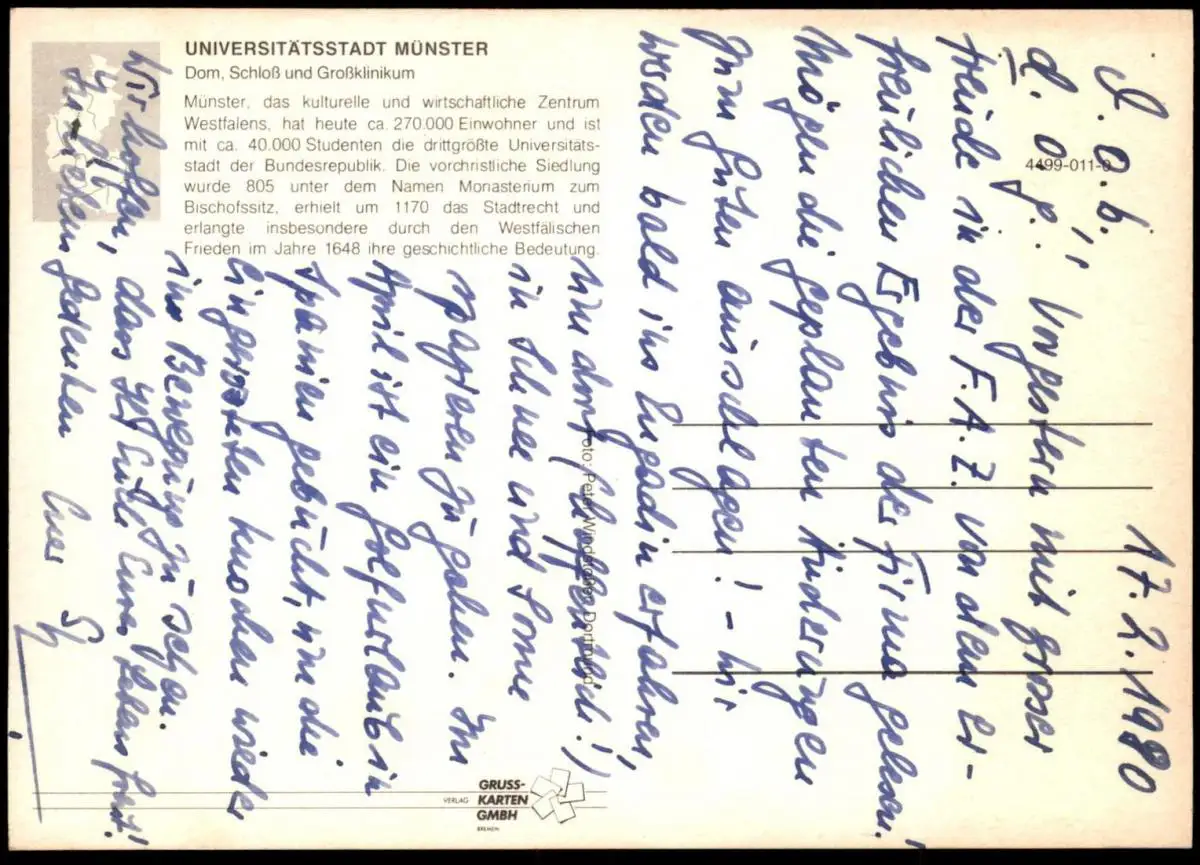 UNIVERSITÄTSSTADT MÜNSTER
Dom, Schloß und Großklinikum
Münster, das kulturelle und wirtschaftliche Zentrum
Westfalens, hat heute ca. 270.000 Einwohner und ist
mit ca. 40.000 Studenten die drittgrößte Universitäts-
stadt der Bundesrepublik. Die vorchristliche Siedlung
wurde 805 unter dem Namen Monasterium zum
Bischofssitz, erhielt um 1170 das Stadtrecht und
erlangte insbesondere durch den Westfälischen
Frieden im Jahre 1648 ihre geschichtliche Bedeutung.
4499-011-0
Foto: Peter Dortmund
VERLAG
GRUSS-
KARTEN
GMBH
BREMEN
17.2.1980
d. o. p.! Vorgestern mit grosser
Freude in der F.A.Z. von dem er-
freulichen Ergebnis der Firma gelesen!
Mögen die geplanten Änderungen
zum Guten ausschlagen! – Wir
werden bald ins Engadin erfahren,
um dort (hoffentlich!)
in Schnee und Sonne
spazieren zu gehen. Im
April ist ein Golfurlaub in
Spanien gebucht, um die
eingerosteten Knochen wieder
in Bewegung zu setzen.
Wir hoffen, dass Ihr Euch Eures Lebens freut!
Gedenken Euer